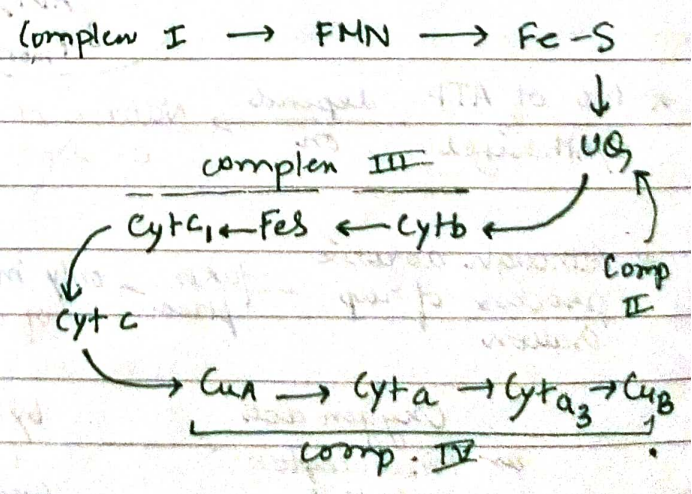 Complex I → FMN → Fe-S
↓
UQ
complex III
Cytc₁ ← FeS ← Cytb
Comp
II
Cyt c
CuA → Cyta → Cyta₃ → CuB
comp. IV